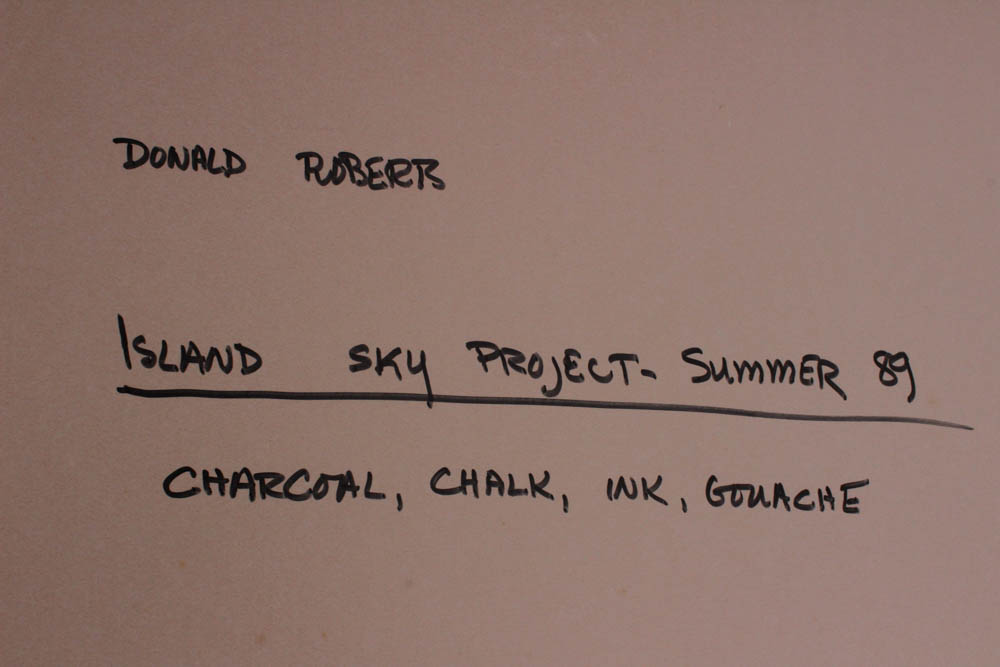 DONALD ROBERTS
ISLAND SKY PROJECT- SUMMER 89
CHARCOAL, CHALK, INK, GOUACHE